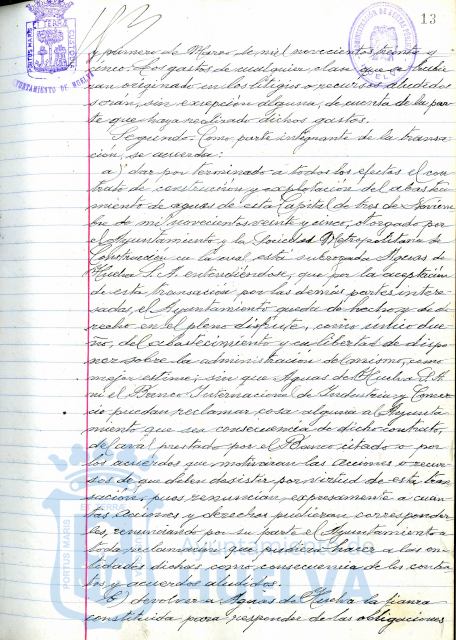 13
y primero de Marzo de mil novecientos treinta y
cinco. Los gastos de cualquier clase que se hubie-
ran originado en los litigios o recursos aludidos
seran, sin excepción alguna, de cuenta de la par-
te que haya realizado dichos gastos.
Segundo. Como parte integrante de la transa-
ción, se acuerda:
a) dar por terminado a todos los efectos el con-
trato de construcción y explotación del abasteci-
miento de aguas de esta Capital de tres de Noviem-
bre de mil novecientos veinte y cinco, otorgado por
el Ayuntamiento y la Sociedad Metropolitana de
Construcción en la cual está subrogada Aguas de
Huelva S.A. entendiéndose, que por la aceptación
de esta transación por las demás partes intere-
sadas, el Ayuntamiento queda de hecho y de de-
recho en el pleno disfrute, como único due-
ño, del abastecimiento y en libertad de dispo-
ner sobre la administración del mismo, como
mejor estime; sin que Aguas de Huelva S.A.
ni el Banco Internacional de Industria y Comer-
cio puedan reclamar cosa alguna al Ayunta-
miento que sea consecuencia de dicho contrato,
del aval prestado por el Banco citado o por
los acuerdos que motivaran las acciones o recur-
sos de que deben desistir por virtud de esta tran-
sación, pues renuncian expresamente a cuan-
tas acciones y derechos pudieran corresponder-
les, renunciando por su parte el Ayuntamiento a
toda reclamación que pudiera hacer a las en-
tidades dichas como consecuencia de los contra-
tos y acuerdos aludidos.
b) devolver a Aguas de Huelva la fianza
constituida para responder de las obligaciones
AYUNTAMIENTO DE HUELVA
PORTUS MARIS
Ayuntamiento de
HUELVA